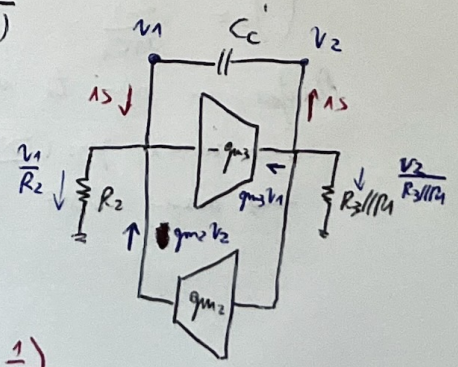 )
v1 Cc v2
is ↓ ↑ is
v1/R2 ↓ R2 -gm3 ← gm3v1 ↓ R3//r1 v2/R3//r1
↑ gm2v2
gm2
1)